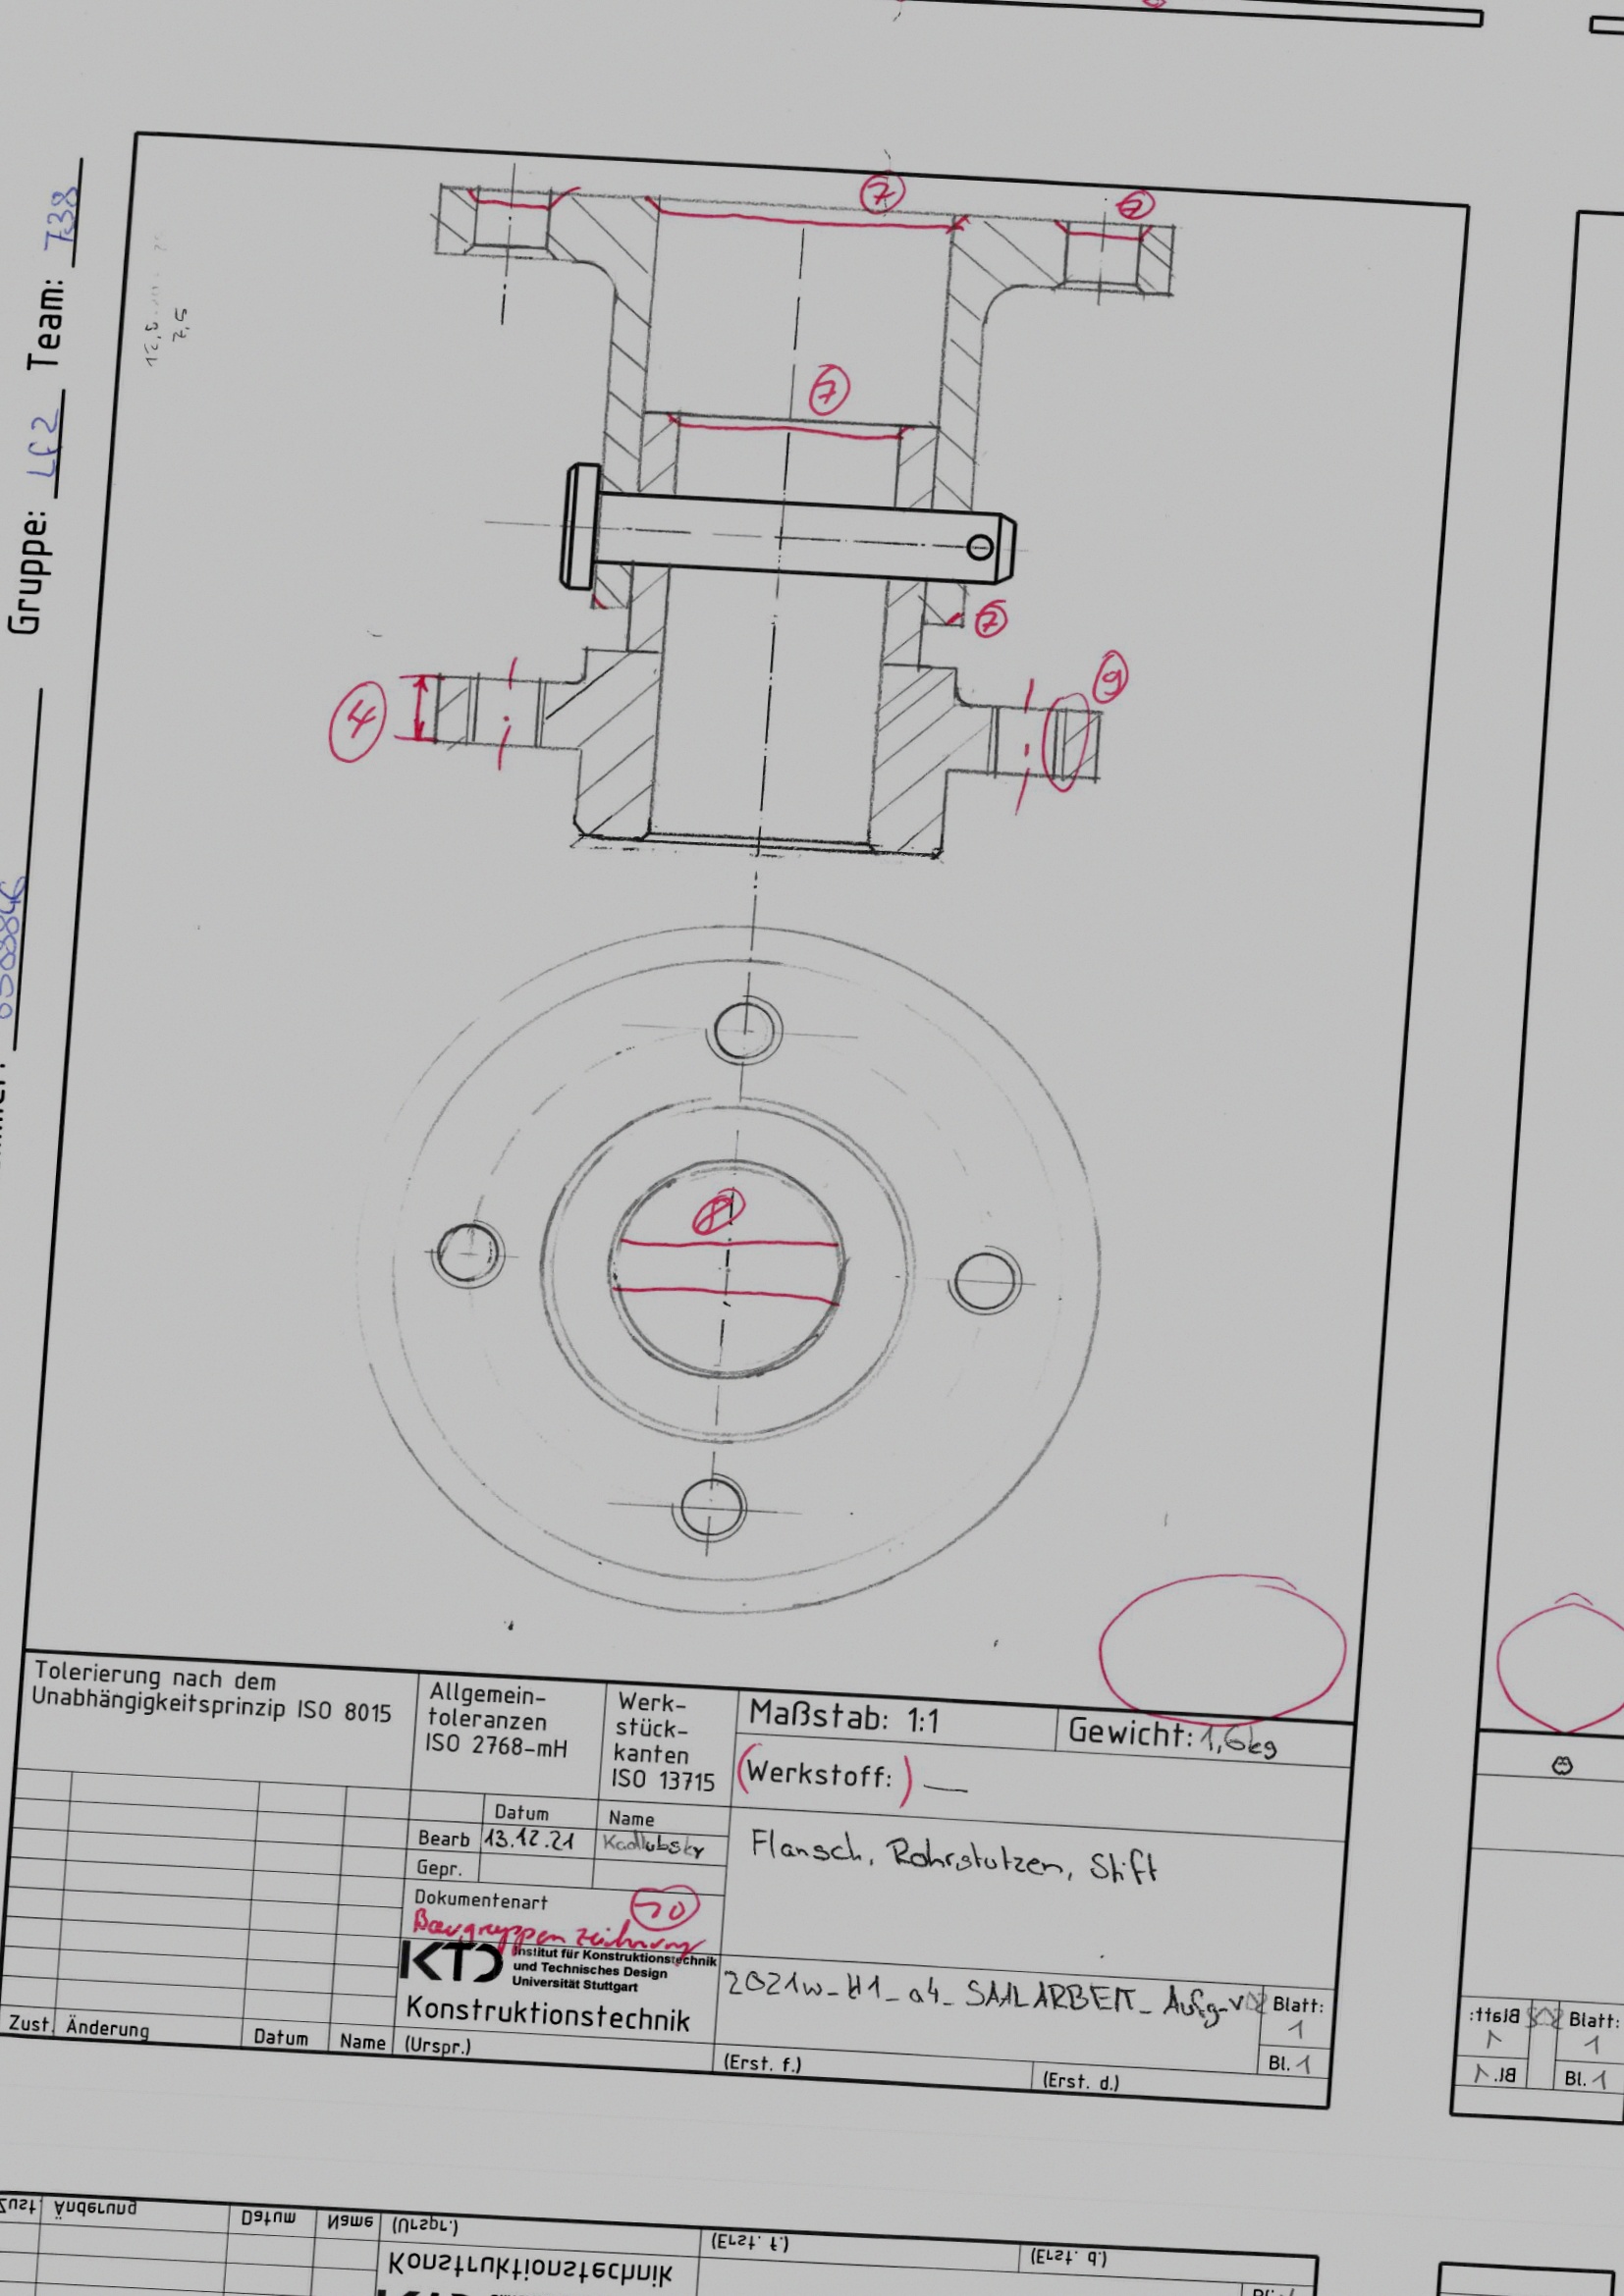 Gruppe: LF2 Team: 738
7,5
7
7
7
7
4
9
8
Tolerierung nach dem
Unabhängigkeitsprinzip ISO 8015
Allgemein-
toleranzen
ISO 2768-mH
Werk-
stück-
kanten
ISO 13715
Maßstab: 1:1
Gewicht: 1,6kg
(Werkstoff:) —
Datum
Name
Bearb
13.12.21
Kadlubsky
Gepr.
Flansch, Rohrstutzen, Stift
Dokumentenart
10
Baugruppenzeichnung
KTD
Institut für Konstruktionstechnik
und Technisches Design
Universität Stuttgart
Konstruktionstechnik
2021w_H1_a4_SAALARBEIT_Aufg-V02
Blatt:
1
Bl. 1
Zust. Änderung
Datum
Name
(Urspr.)
(Erst. f.)
(Erst. d.)
Blatt:
1
Bl. 1
Blatt:
1
Bl. 1
Zust. Änderung
Datum
Name
(Urspr.)
(Erst. f.)
(Erst. d.)
Konstruktionstechnik